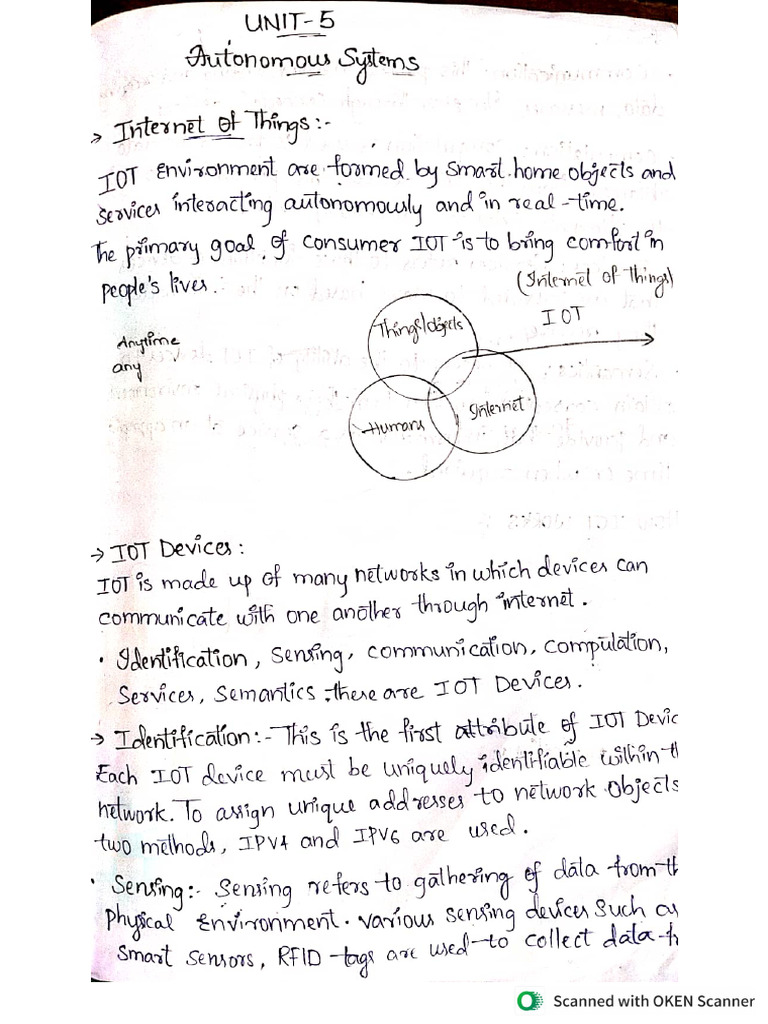 UNIT-5
Autonomous Systems
→ Internet of Things:-
IOT Environment are formed by smart home objects and
services interacting autonomously and in real-time.
The primary goal of consumer IOT is to bring comfort in
people's lives.
(Internet of Things)
IOT
Things/objects
Anytime
any
Internet
Humans
→ IOT Devices:
IOT is made up of many networks in which devices can
communicate with one another through internet.
• Identification, Sensing, communication, compulation,
Services, Semantics, these are IOT Devices.
→ Identification:- This is the first attribute of IOT Devic
Each IOT device must be uniquely identifiable within th
network. To assign unique addresses to network objects
two methods, IPV4 and IPV6 are used.
• Sensing:- Sensing refers to gathering of data from th
physical Environment. various sensing devices such as
smart sensors, RFID tags are used to collect data fr
Scanned with OKEN Scanner